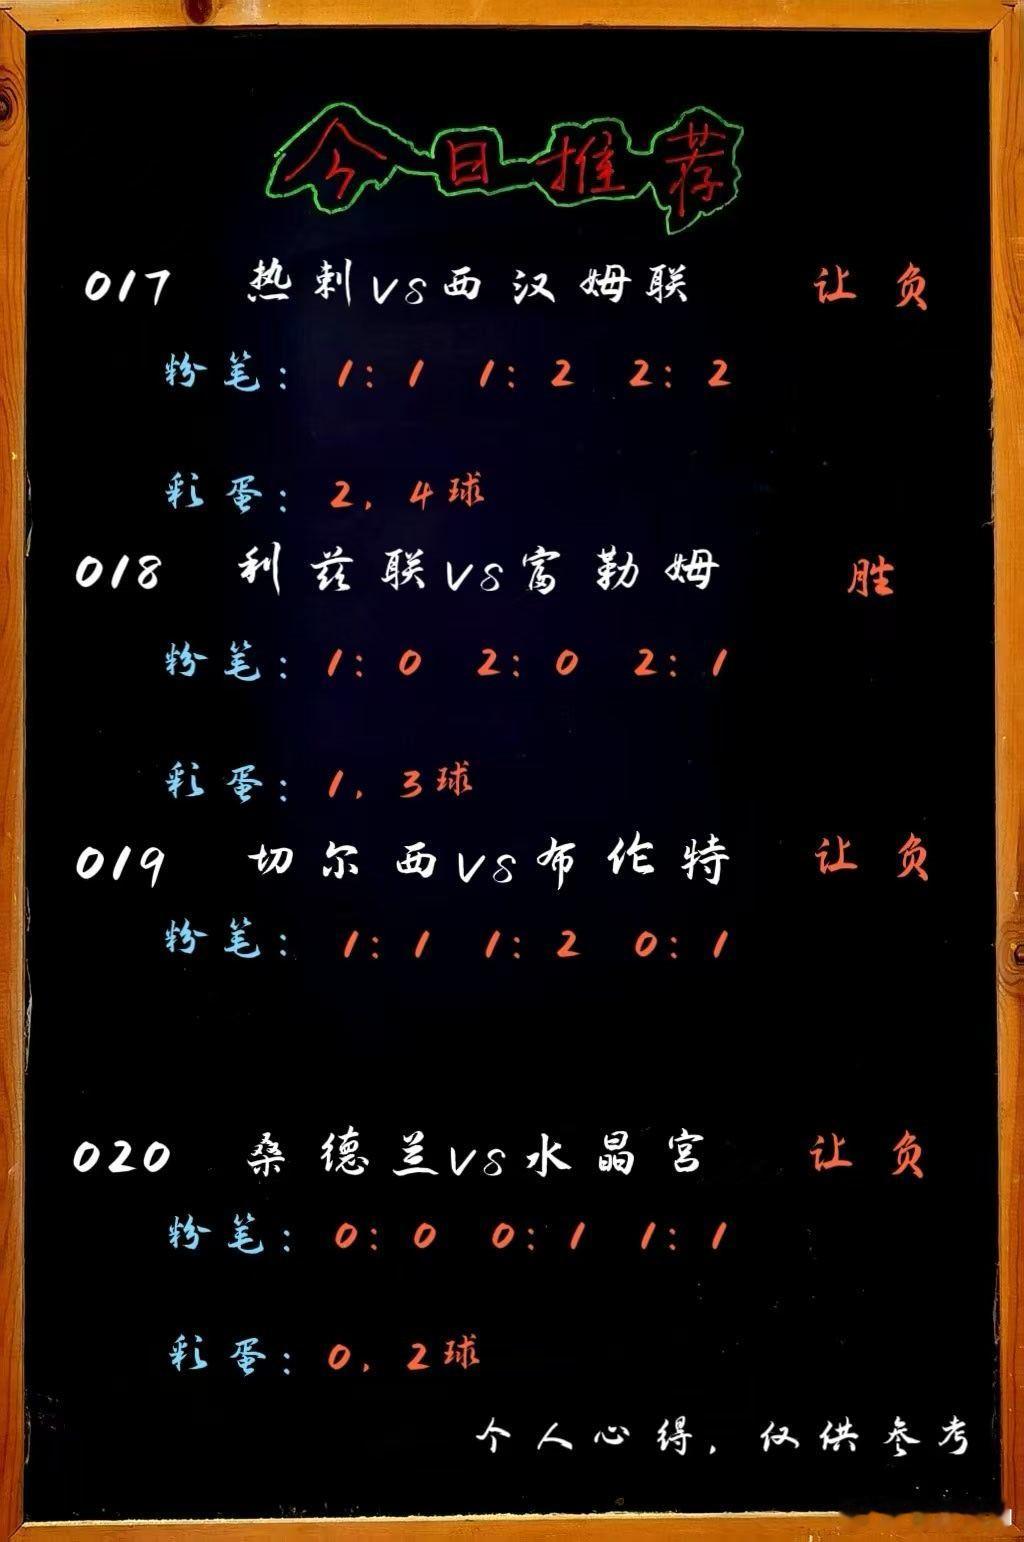 今日推荐
017 热刺VS西汉姆联 让负
粉笔: 1:1 1:2 2:2
彩蛋: 2,4球
018 利兹联VS富勒姆 胜
粉笔: 1:0 2:0 2:1
彩蛋: 1,3球
019 切尔西VS布伦特 让负
粉笔: 1:1 1:2 0:1
020 桑德兰VS水晶宫 让负
粉笔: 0:0 0:1 1:1
彩蛋: 0,2球
个人心得,仅供参考